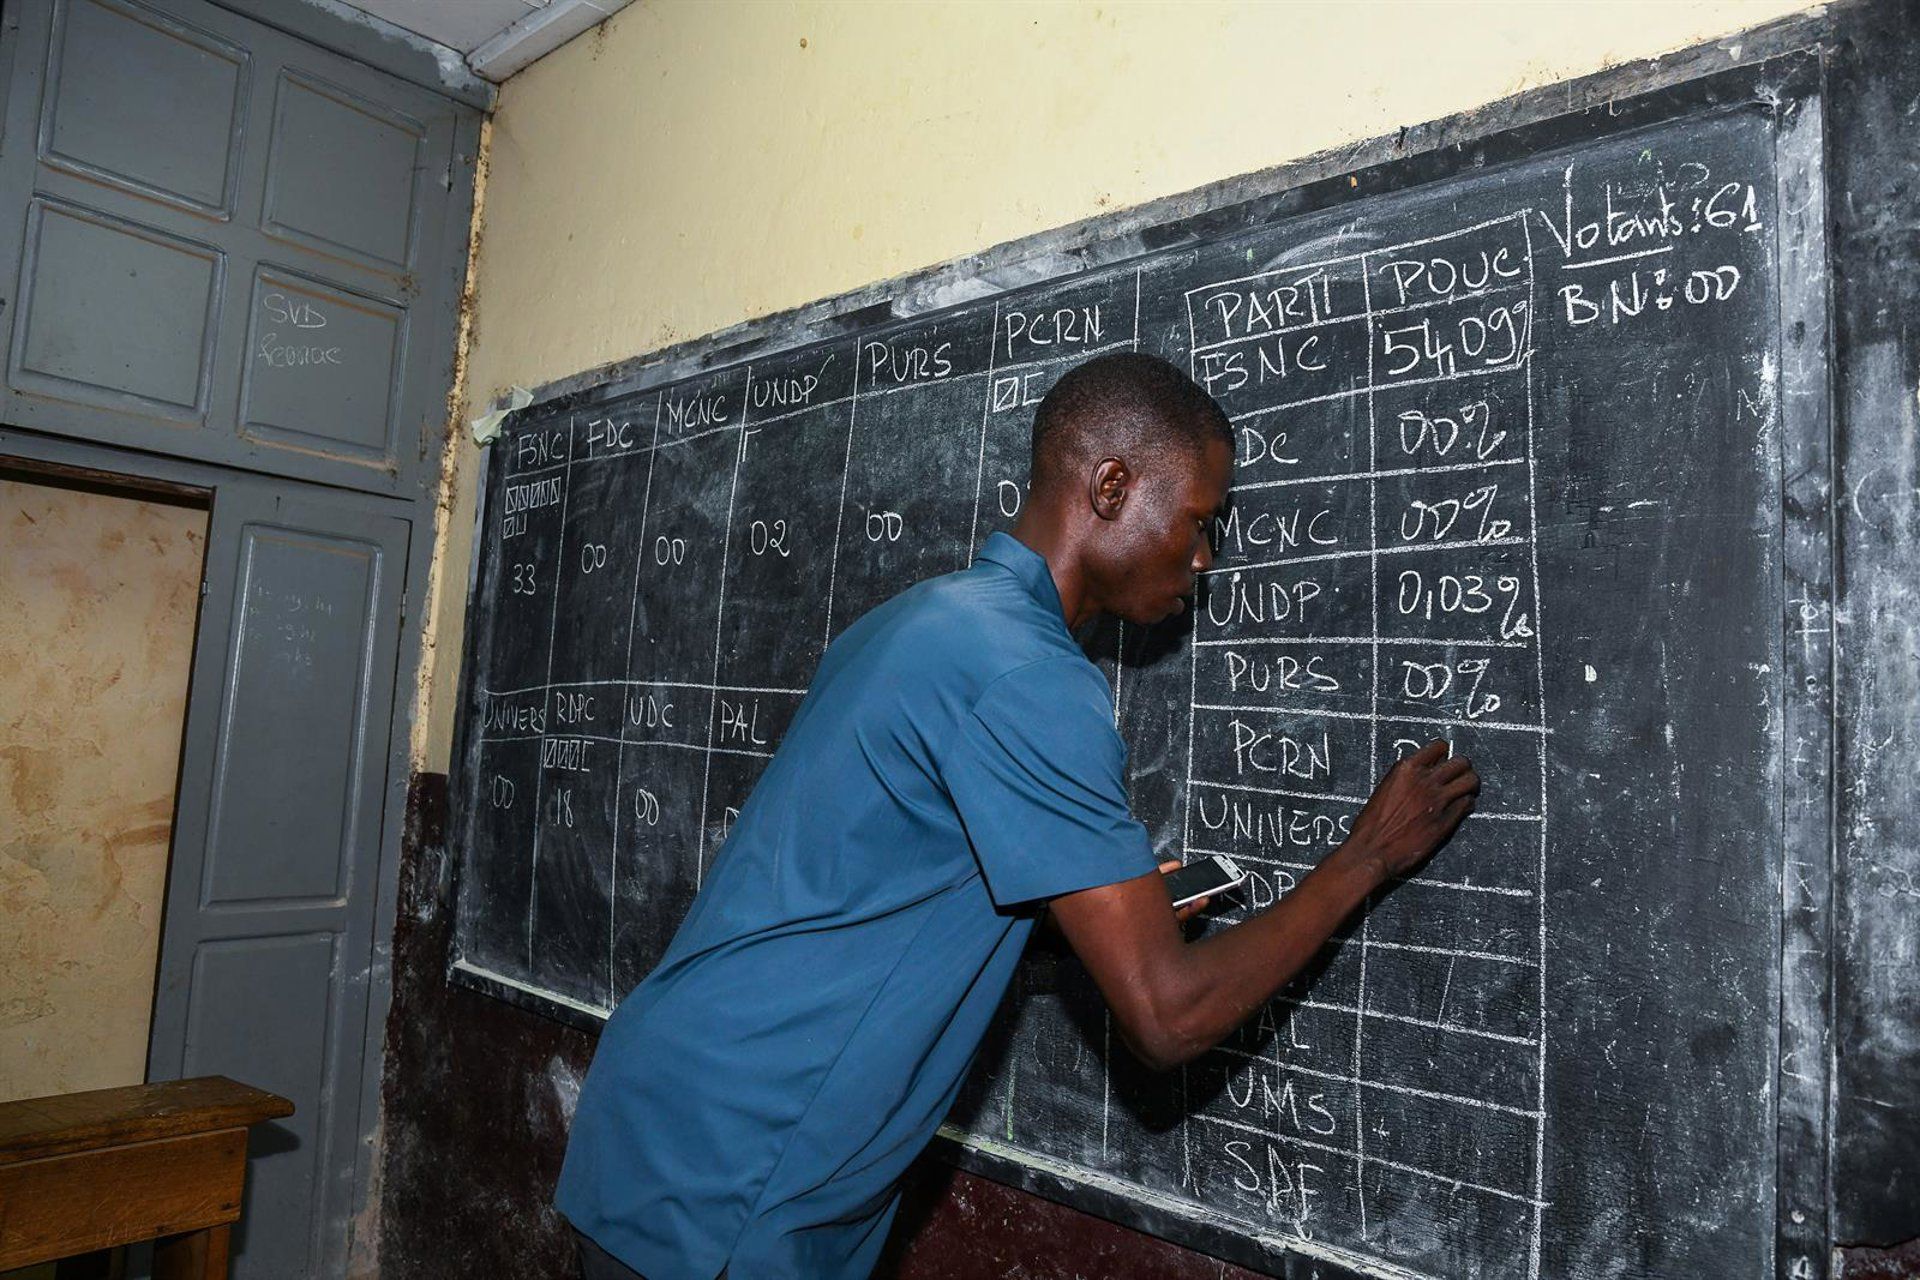 SVD
FSNC FDC MCNC UNDP PURS PCRN
33 00 00 02 00
UNIVERS RDPC UDC PAL
00 18 00
PARTI POUC.
FSNC 54,09%
DC 00%
MCNC 00%
UNDP 0,03%
PURS 00%
PCRN
UNIVERS
DP
AL
UMS
SDF
Votants: 61
BN: 00